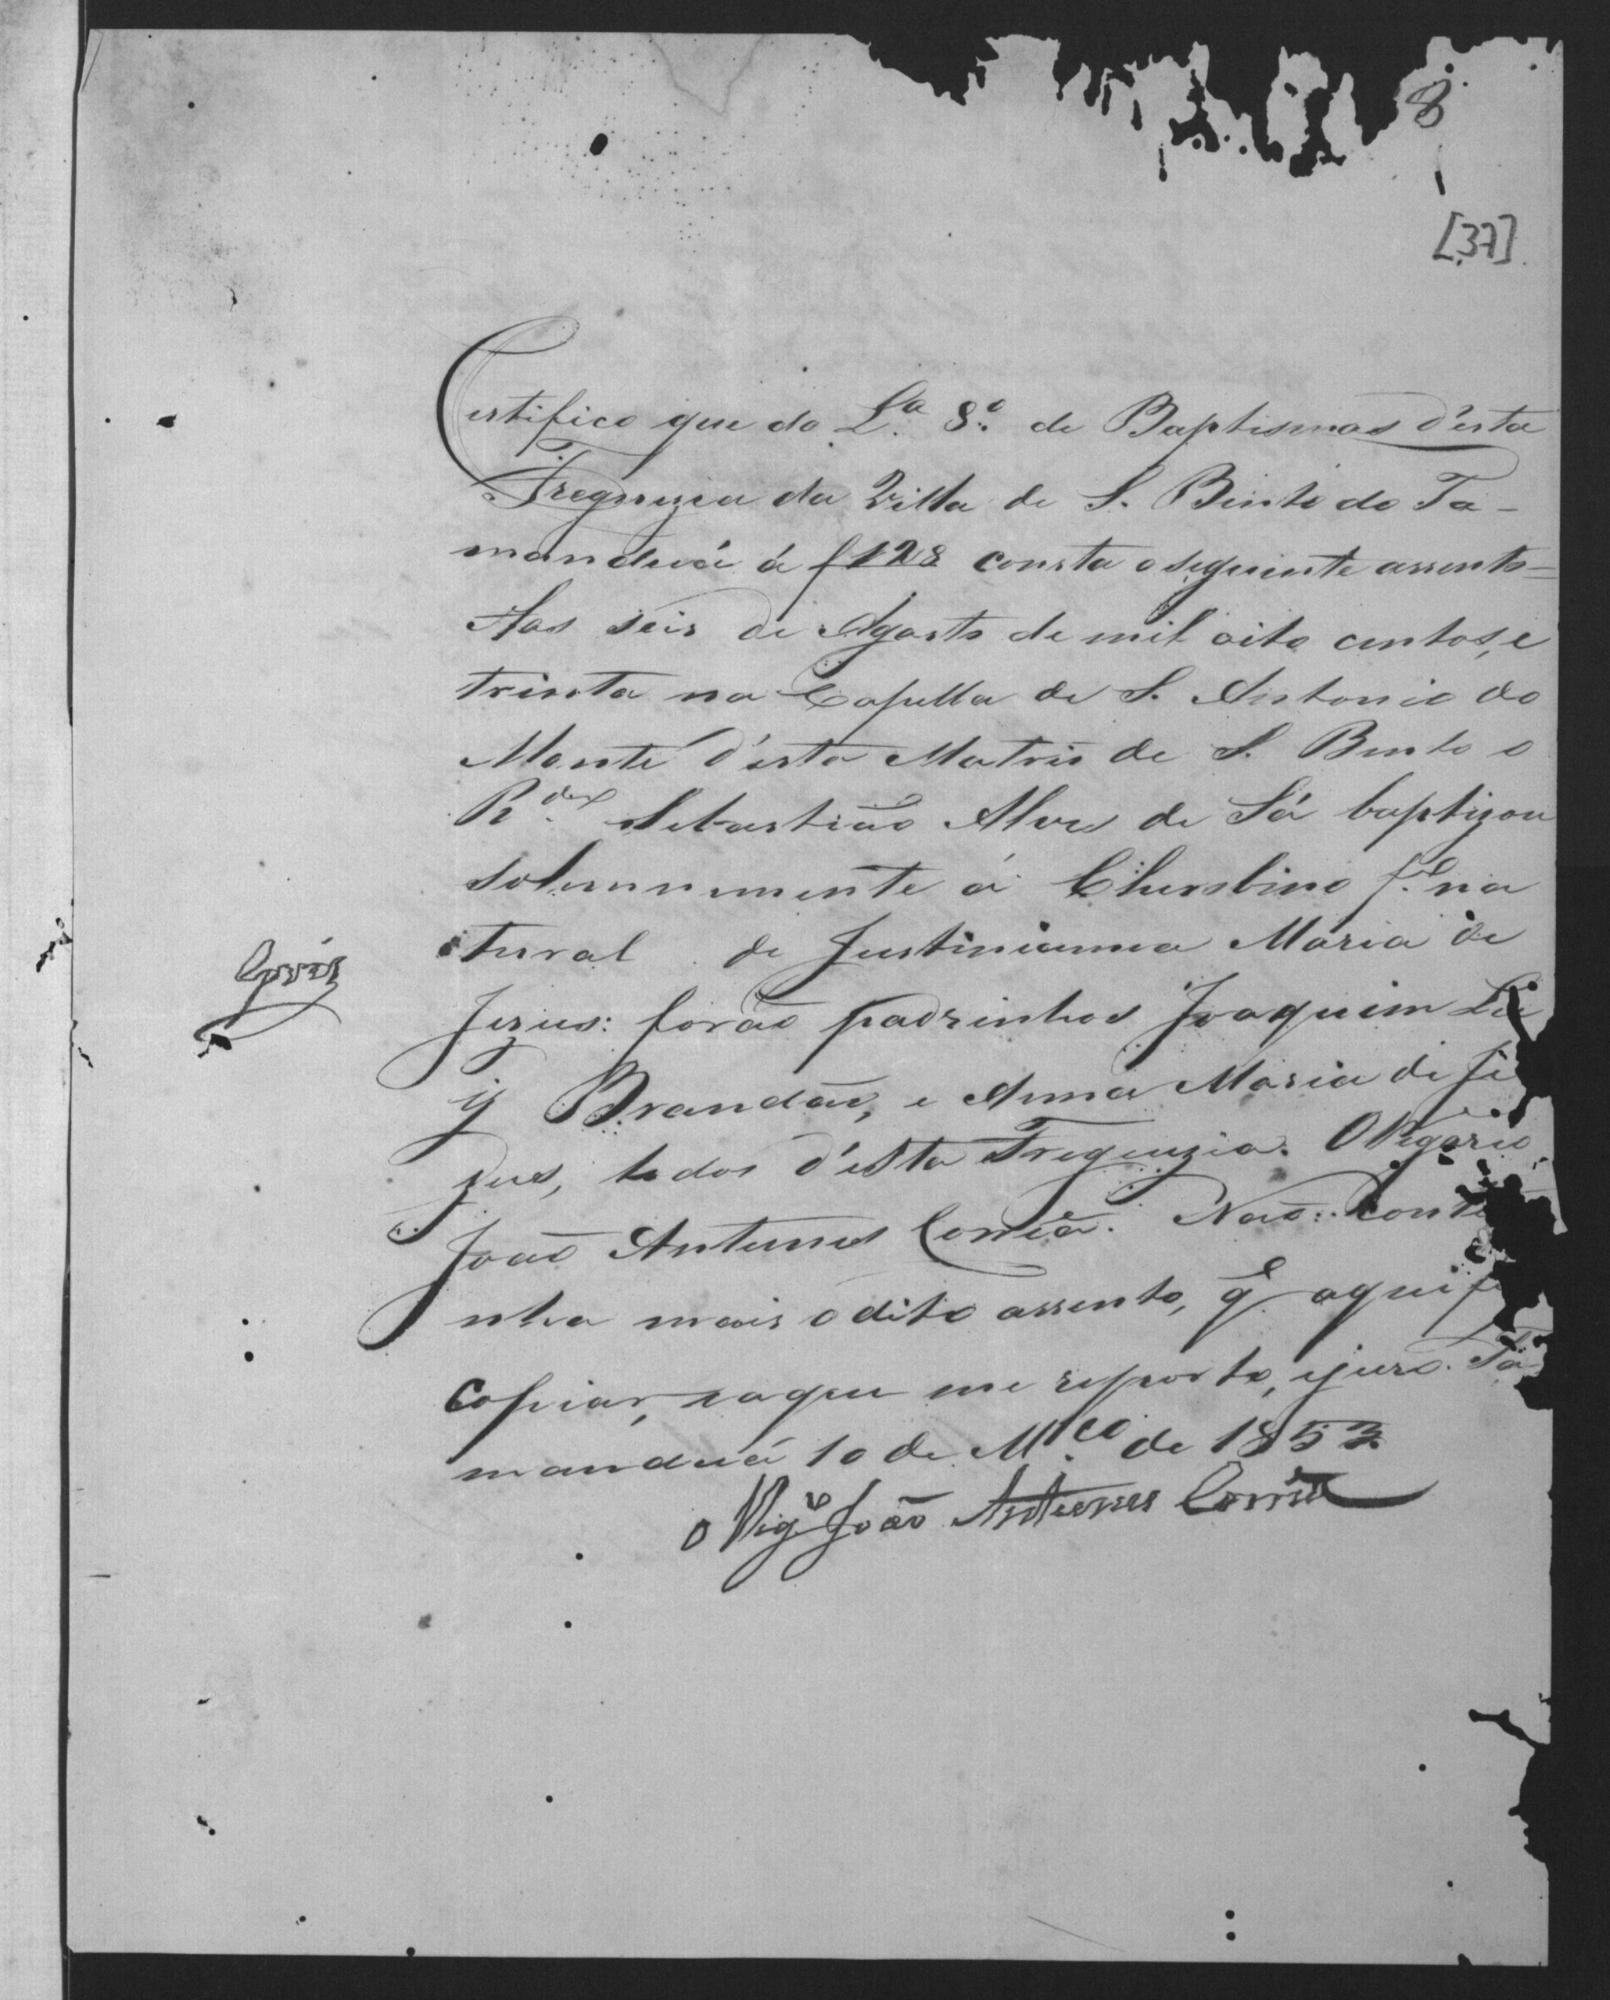 8
[37]
Certifico que do L.º 8.º de Baptismos d'esta
Freguezia da Villa de S. Bento do Ta-
manduá á f 128 consta o seguinte assento =
Aos seis de Agosto de mil oito centos, e
trinta na Capella de S. Antonio do
Monte d'esta Matris de S. Bento o
R.do Sebastião Alves de Sá baptizou
solemnemente á Cherubino f.º na
tural de Justinianna Maria de
Jezus: forão padrinhos Joaquim Lu
is Brandão, e Anna Maria de Je
zus, todos d'esta Freguezia. O Vigario
João Antunes Corrêa. Não conti
nha mais o dito assento, q̃ aqui fi
copiar, e a que me reporto, e juro. Ta
manduá 10 de M.ço de 1853
O Vigr.º João Antunes Corrêa